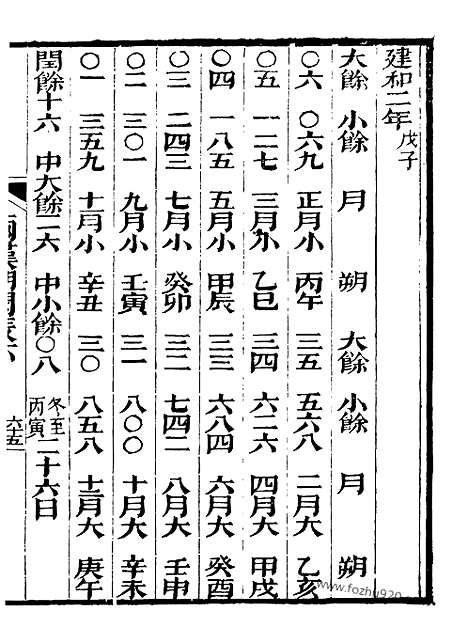 建和二年戊子
大餘 小餘 月 朔 大餘 小餘 月 朔
〇六 〇六九 正月小 丙午 三五 五六八 二月大 乙亥
〇五 一二七 三月小 乙巳 三四 六二六 四月大 甲戌
〇四 一八五 五月小 甲辰 三三 六八四 六月大 癸酉
〇三 二四三 七月小 癸卯 三二 七四二 八月大 壬申
〇二 三〇一 九月小 壬寅 三一 八〇〇 十月大 辛未
〇一 三五九 十一月小 辛丑 三〇 八五八 十二月大 庚午
閏餘十六 中大餘二六 中小餘〇八 冬至丙寅二十六日
六十五
www.fozhu920.com